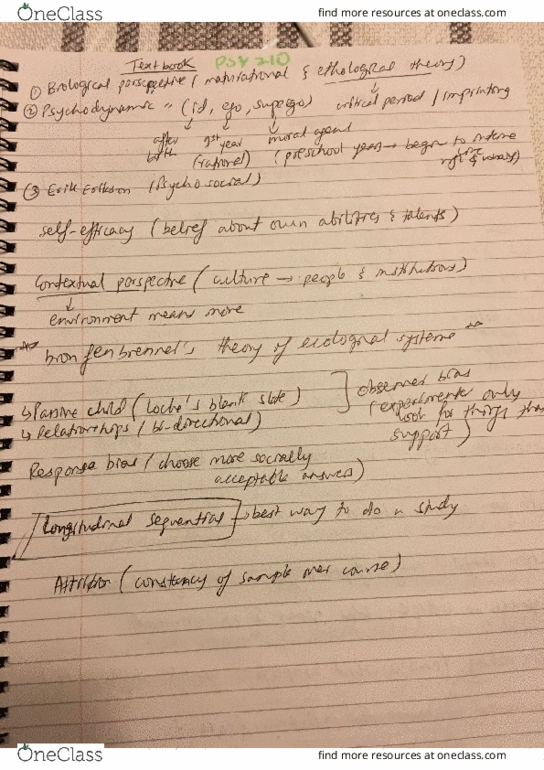 OneClass
find more resources at oneclass.com
Textbook PSY 210
① Biological perspective ( maturational & ethological theory)
② Psychodynamic " (id, ego, superego) critical period / imprinting
after birth 1st year moral agent
(rational) (preschool years → begin to
③ Erik Erikson (Psychosocial)
self-efficacy (belief about own abilities & talents)
Contextual perspective ( culture → people & institutions)
↓
environment means more
bronfenbrennel's theory of ecological systems
↳ Passive child ( Locke's blank slate ) ] observer bias
↳ Relationships / bi-directional) (experimenter only
look for things that
support)
Response bias / choose more socially
acceptable answers)
Longitudinal sequential → best way to do a study
Attrition ( constancy of sample over course)
OneClass
find more resources at oneclass.com